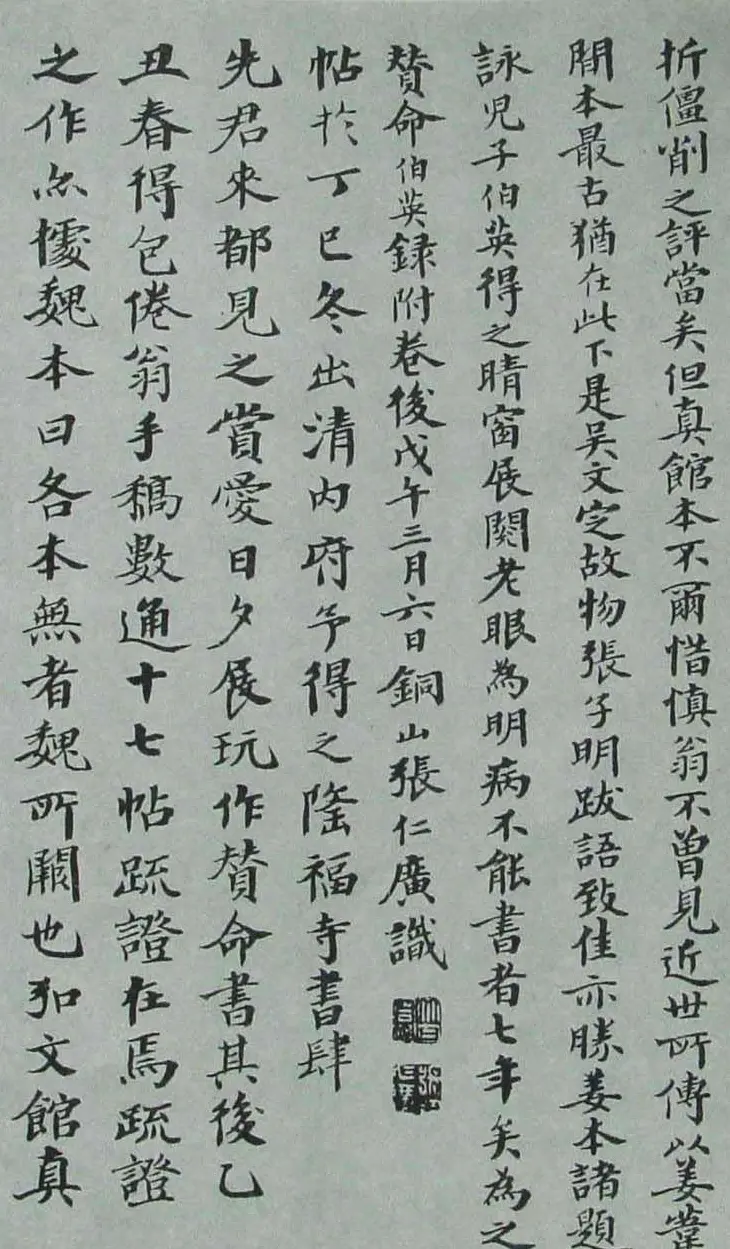 折僵削之評當矣但真館本不爾惜慎翁不曾見近世所傳以姜葦
間本最古猶在此下是吳文定故物張子明跋語致佳亦勝姜本諸題
詠兒子伯英得之晴窗展閱老眼為明病不能書者七年矣為之
贊命伯英錄附卷後戊午三月六日銅山張仁廣識
帖於丁巳冬出清內府予得之隆福寺書肆
先君來都見之賞愛日夕展玩作贊命書其後乙
丑春得包倦翁手稿數通十七帖疏證在焉疏證
之作亦據魏本曰各本無者魏所闕也弘文館真